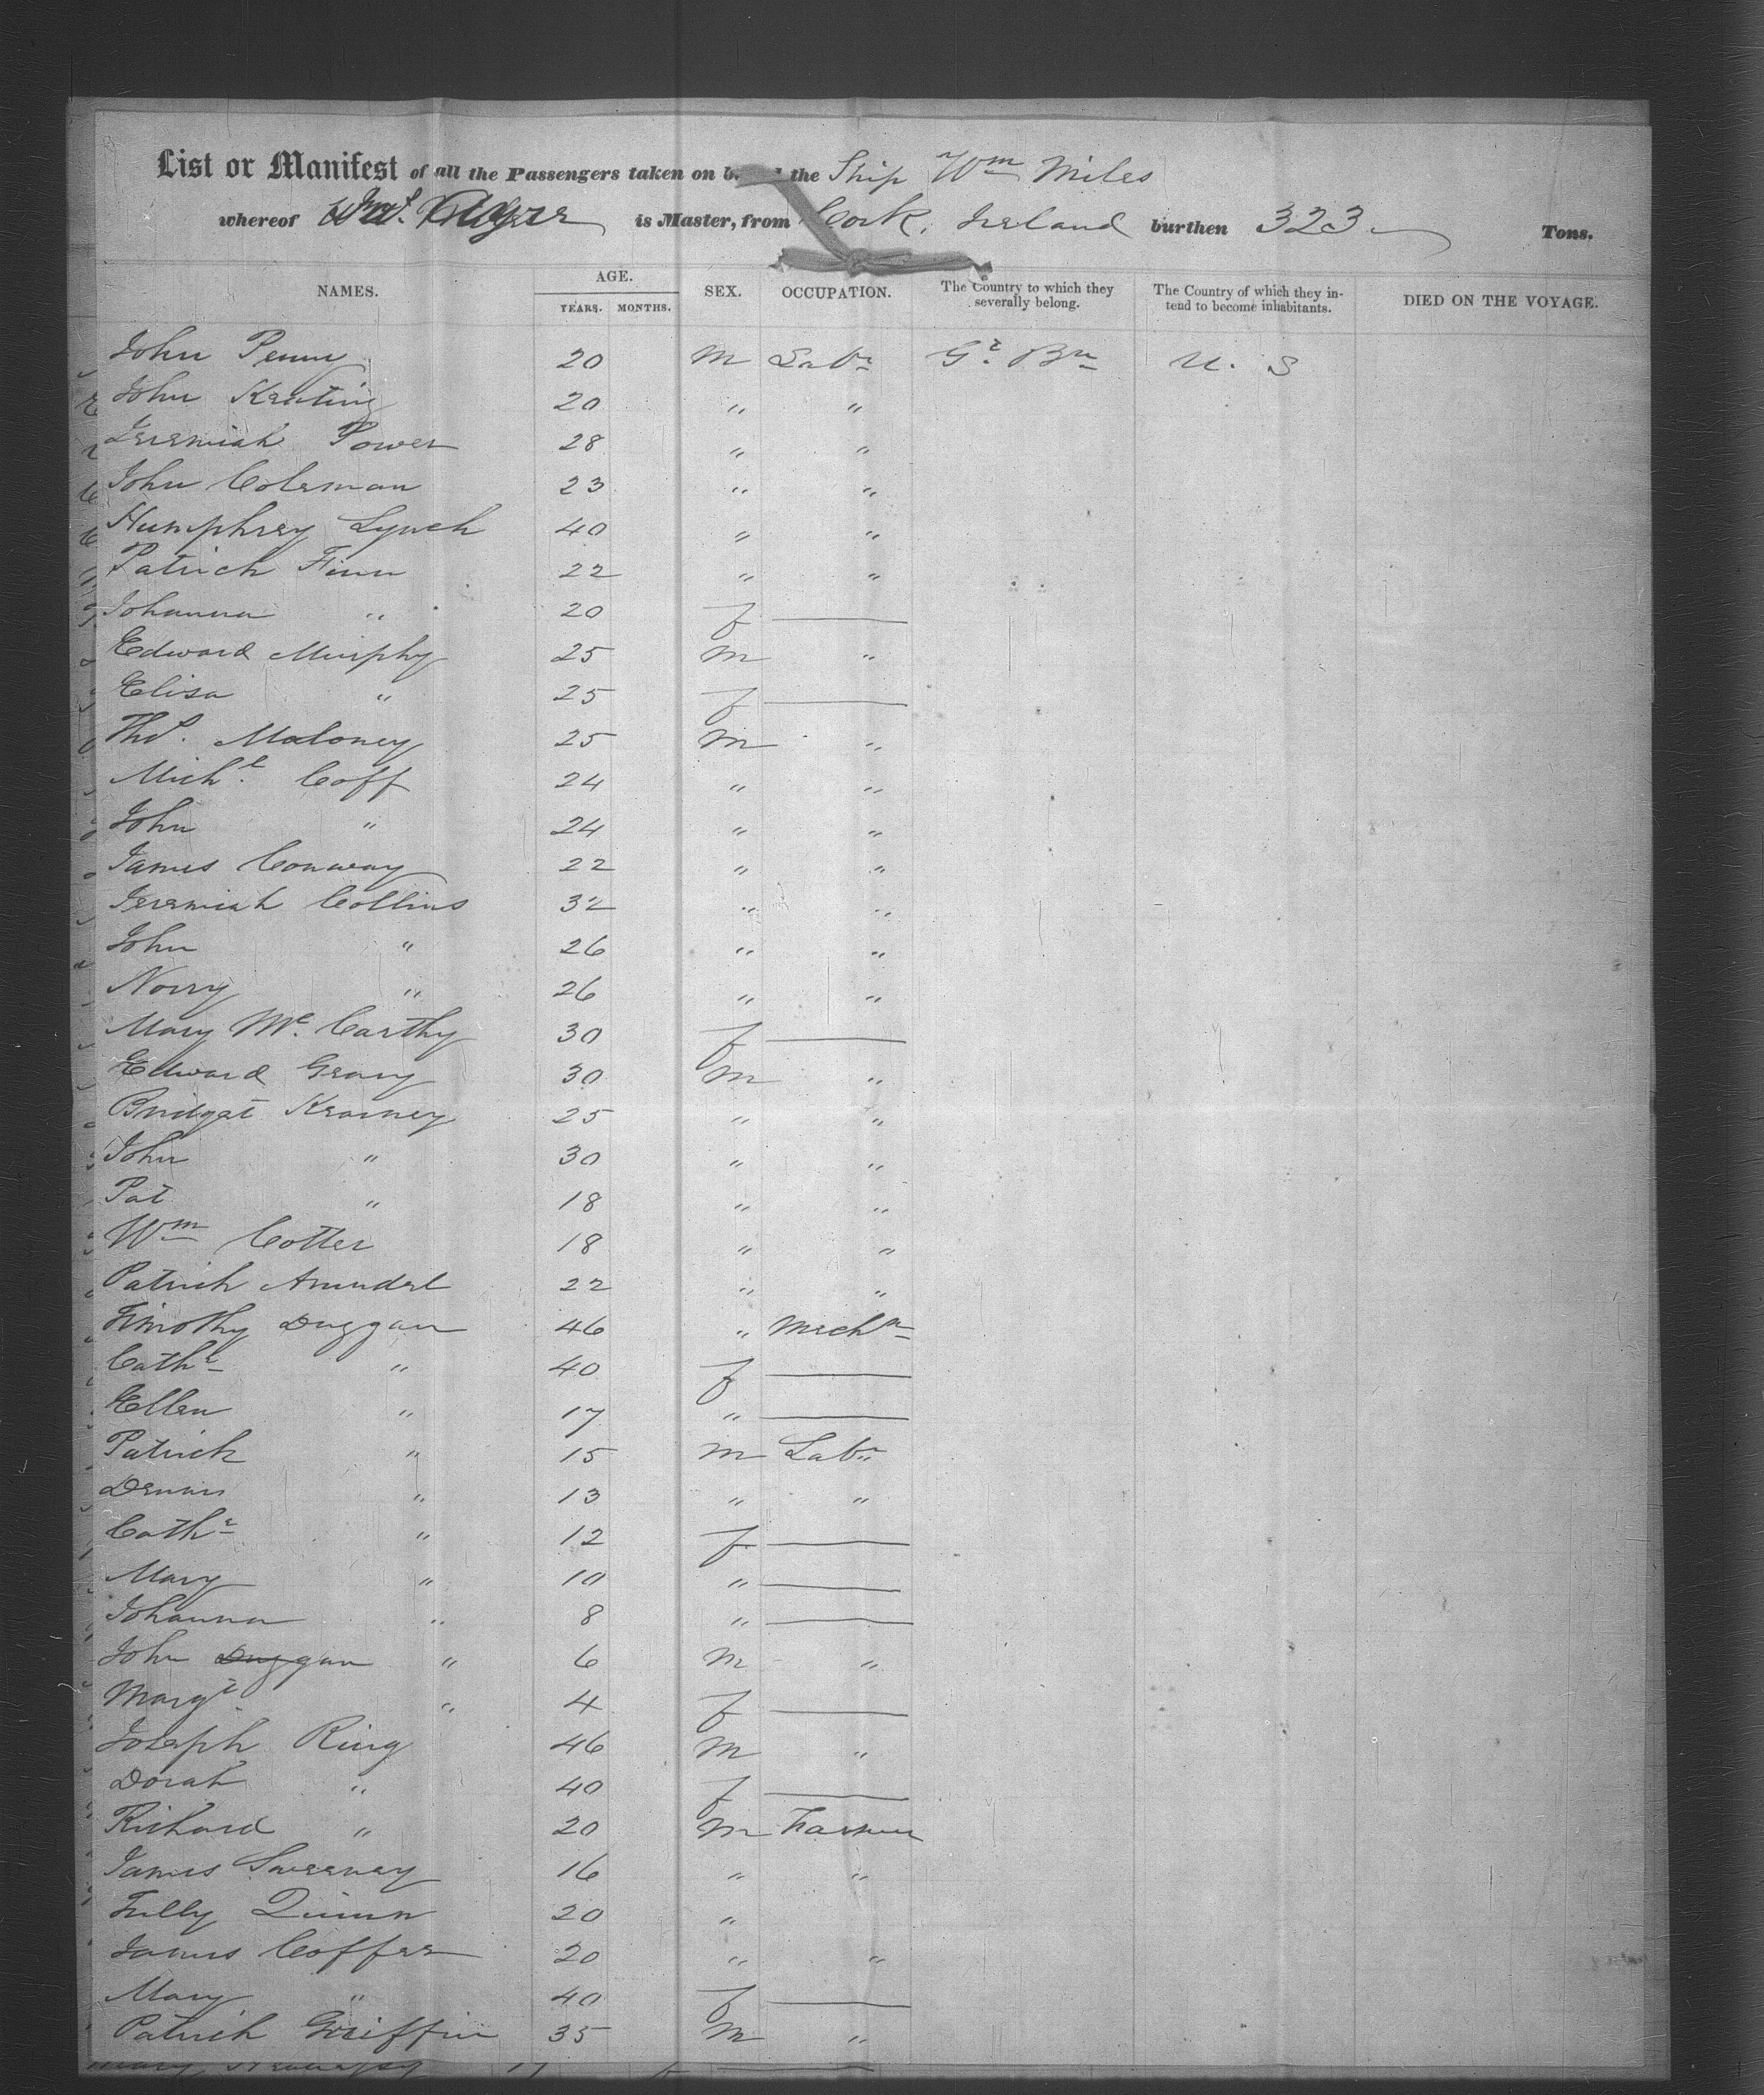 List or Manifest of all the Passengers taken on b the Ship Wm Miles
whereof is Master, from Cork, Ireland burthen 323 Tons.
NAMES. AGE. YEARS. MONTHS. SEX. OCCUPATION. The Country to which they severally belong. The Country of which they intend to become inhabitants. DIED ON THE VOYAGE.
John Penny 20 M Labr Gt Bn U. S
John Keating 20 " "
Jeremiah Power 28 " "
John Coleman 23 " "
Humphrey Lynch 40 " "
Patrick Finn 22 " "
Johanna " 20 f —
Edward Murphy 25 M "
Elisa " 25 f —
Thos. Maloney 25 M "
Michl. Coff 24 " "
John " 24 " "
James Conway 22 " "
Jeremiah Collins 32 " "
John " 26 " "
Norry " 26 " "
Mary Mc. Carthy 30 f —
Edward Geary 30 M "
Bridget Kearney 25 " "
John " 30 " "
Pat " 18 " "
Wm Cotter 18 " "
Patrick Arundel 22 " "
Timothy Duggan 46 " Mechn
Cathe " 40 f —
Ellen " 17 " —
Patrick " 15 M Labr
Dennis " 13 " "
Cathe " 12 f —
Mary " 10 " —
Johanna " 8 " —
John Duggan " 6 M "
Margt " 4 f —
Joseph Ring 46 M "
Dorah " 40 f —
Richard " 20 M Farmer
James Sweeney 16 " "
Tully Quinn 20 "
James Coffee 20 " "
Mary " 40 f —
Patrick Griffin 35 M "